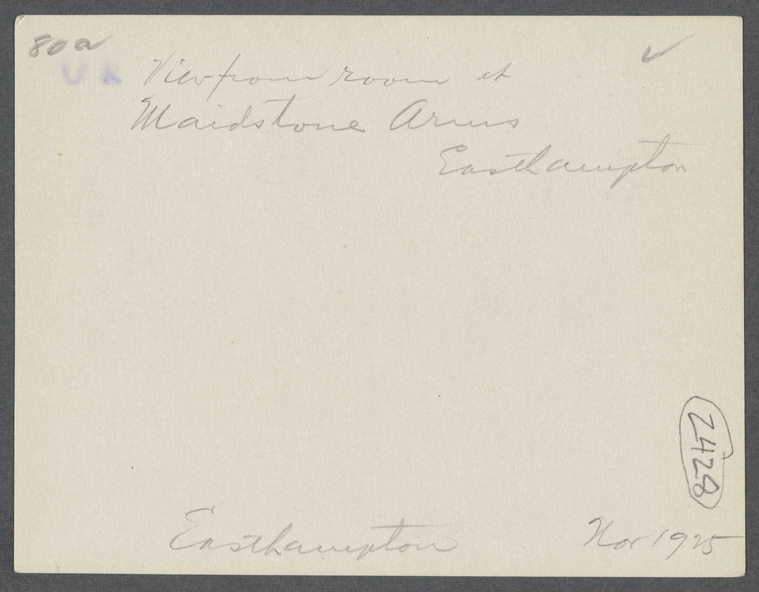 80a
View from room at
Maidstone Arms
Easthampton
2428
Easthampton Nov 1925